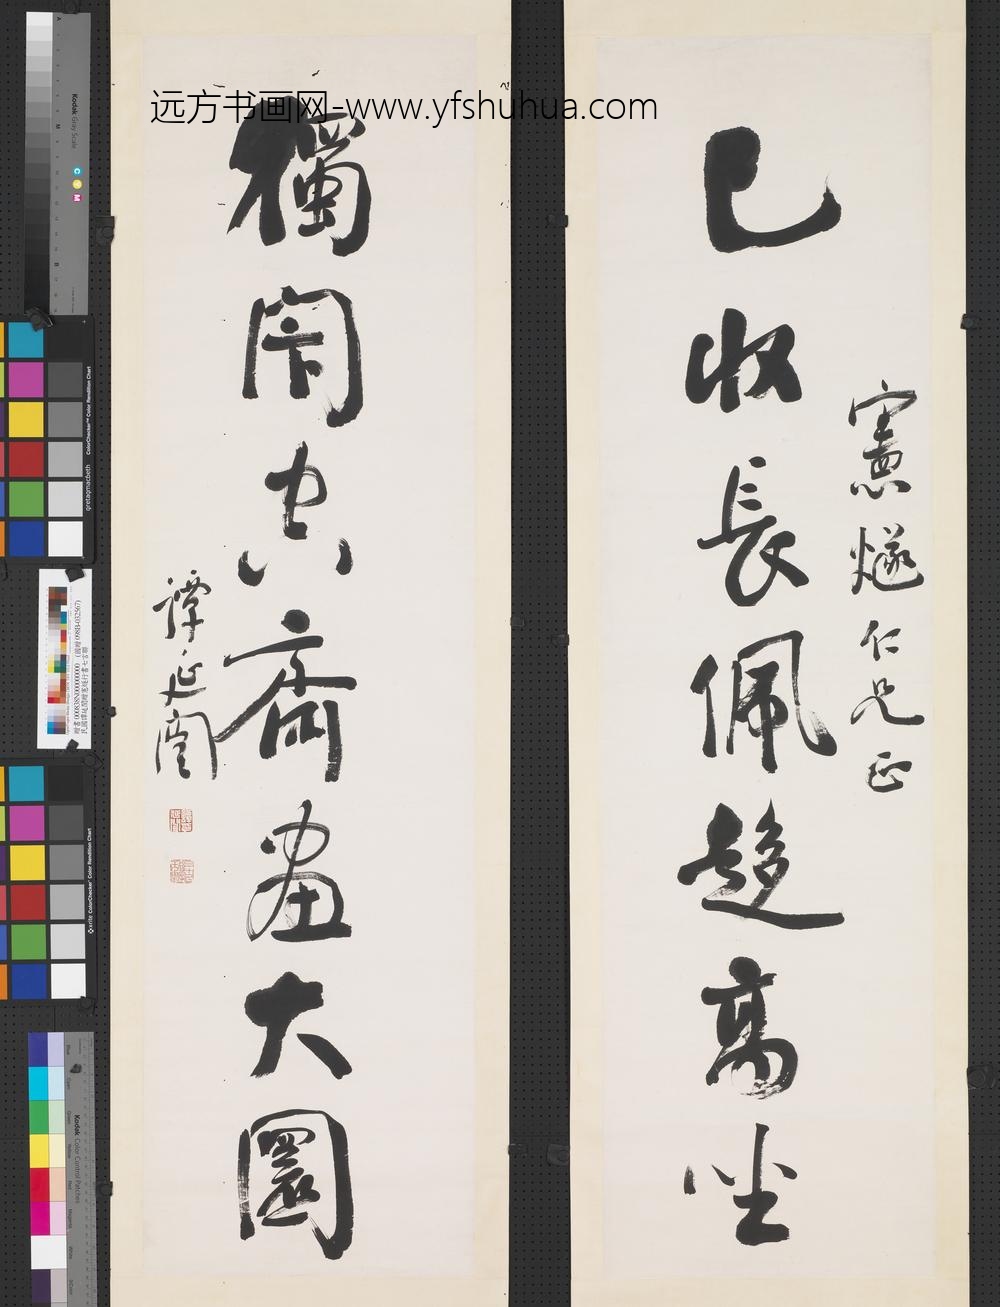 远方书画网-www.yfshuhua.com
憲燧仁兄正
已收長佩趍高坐
獨閇空齋畫大圜
譚延闓
Kodak Gray Scale
C
Y
M
ColorChecker Color Rendition Chart
gretagmacbeth
x-rite ColorChecker Color Rendition Chart
Kodak Color Control Patches